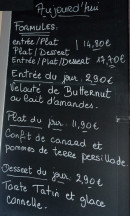 Aujourd'hui
FORMULES:
entrée/Plat
Plat/Dessert | 14,80€
Entrée/Plat/Dessert 17,70€
Entrée du jour: 2,90€
Velouté de Butternut
au lait d'amandes.
Plat du jour: 11,90€
Confit de canard et
pommes de terre persillade.
Dessert du jour 2,90€
Tarte Tatin et glace
cannelle.